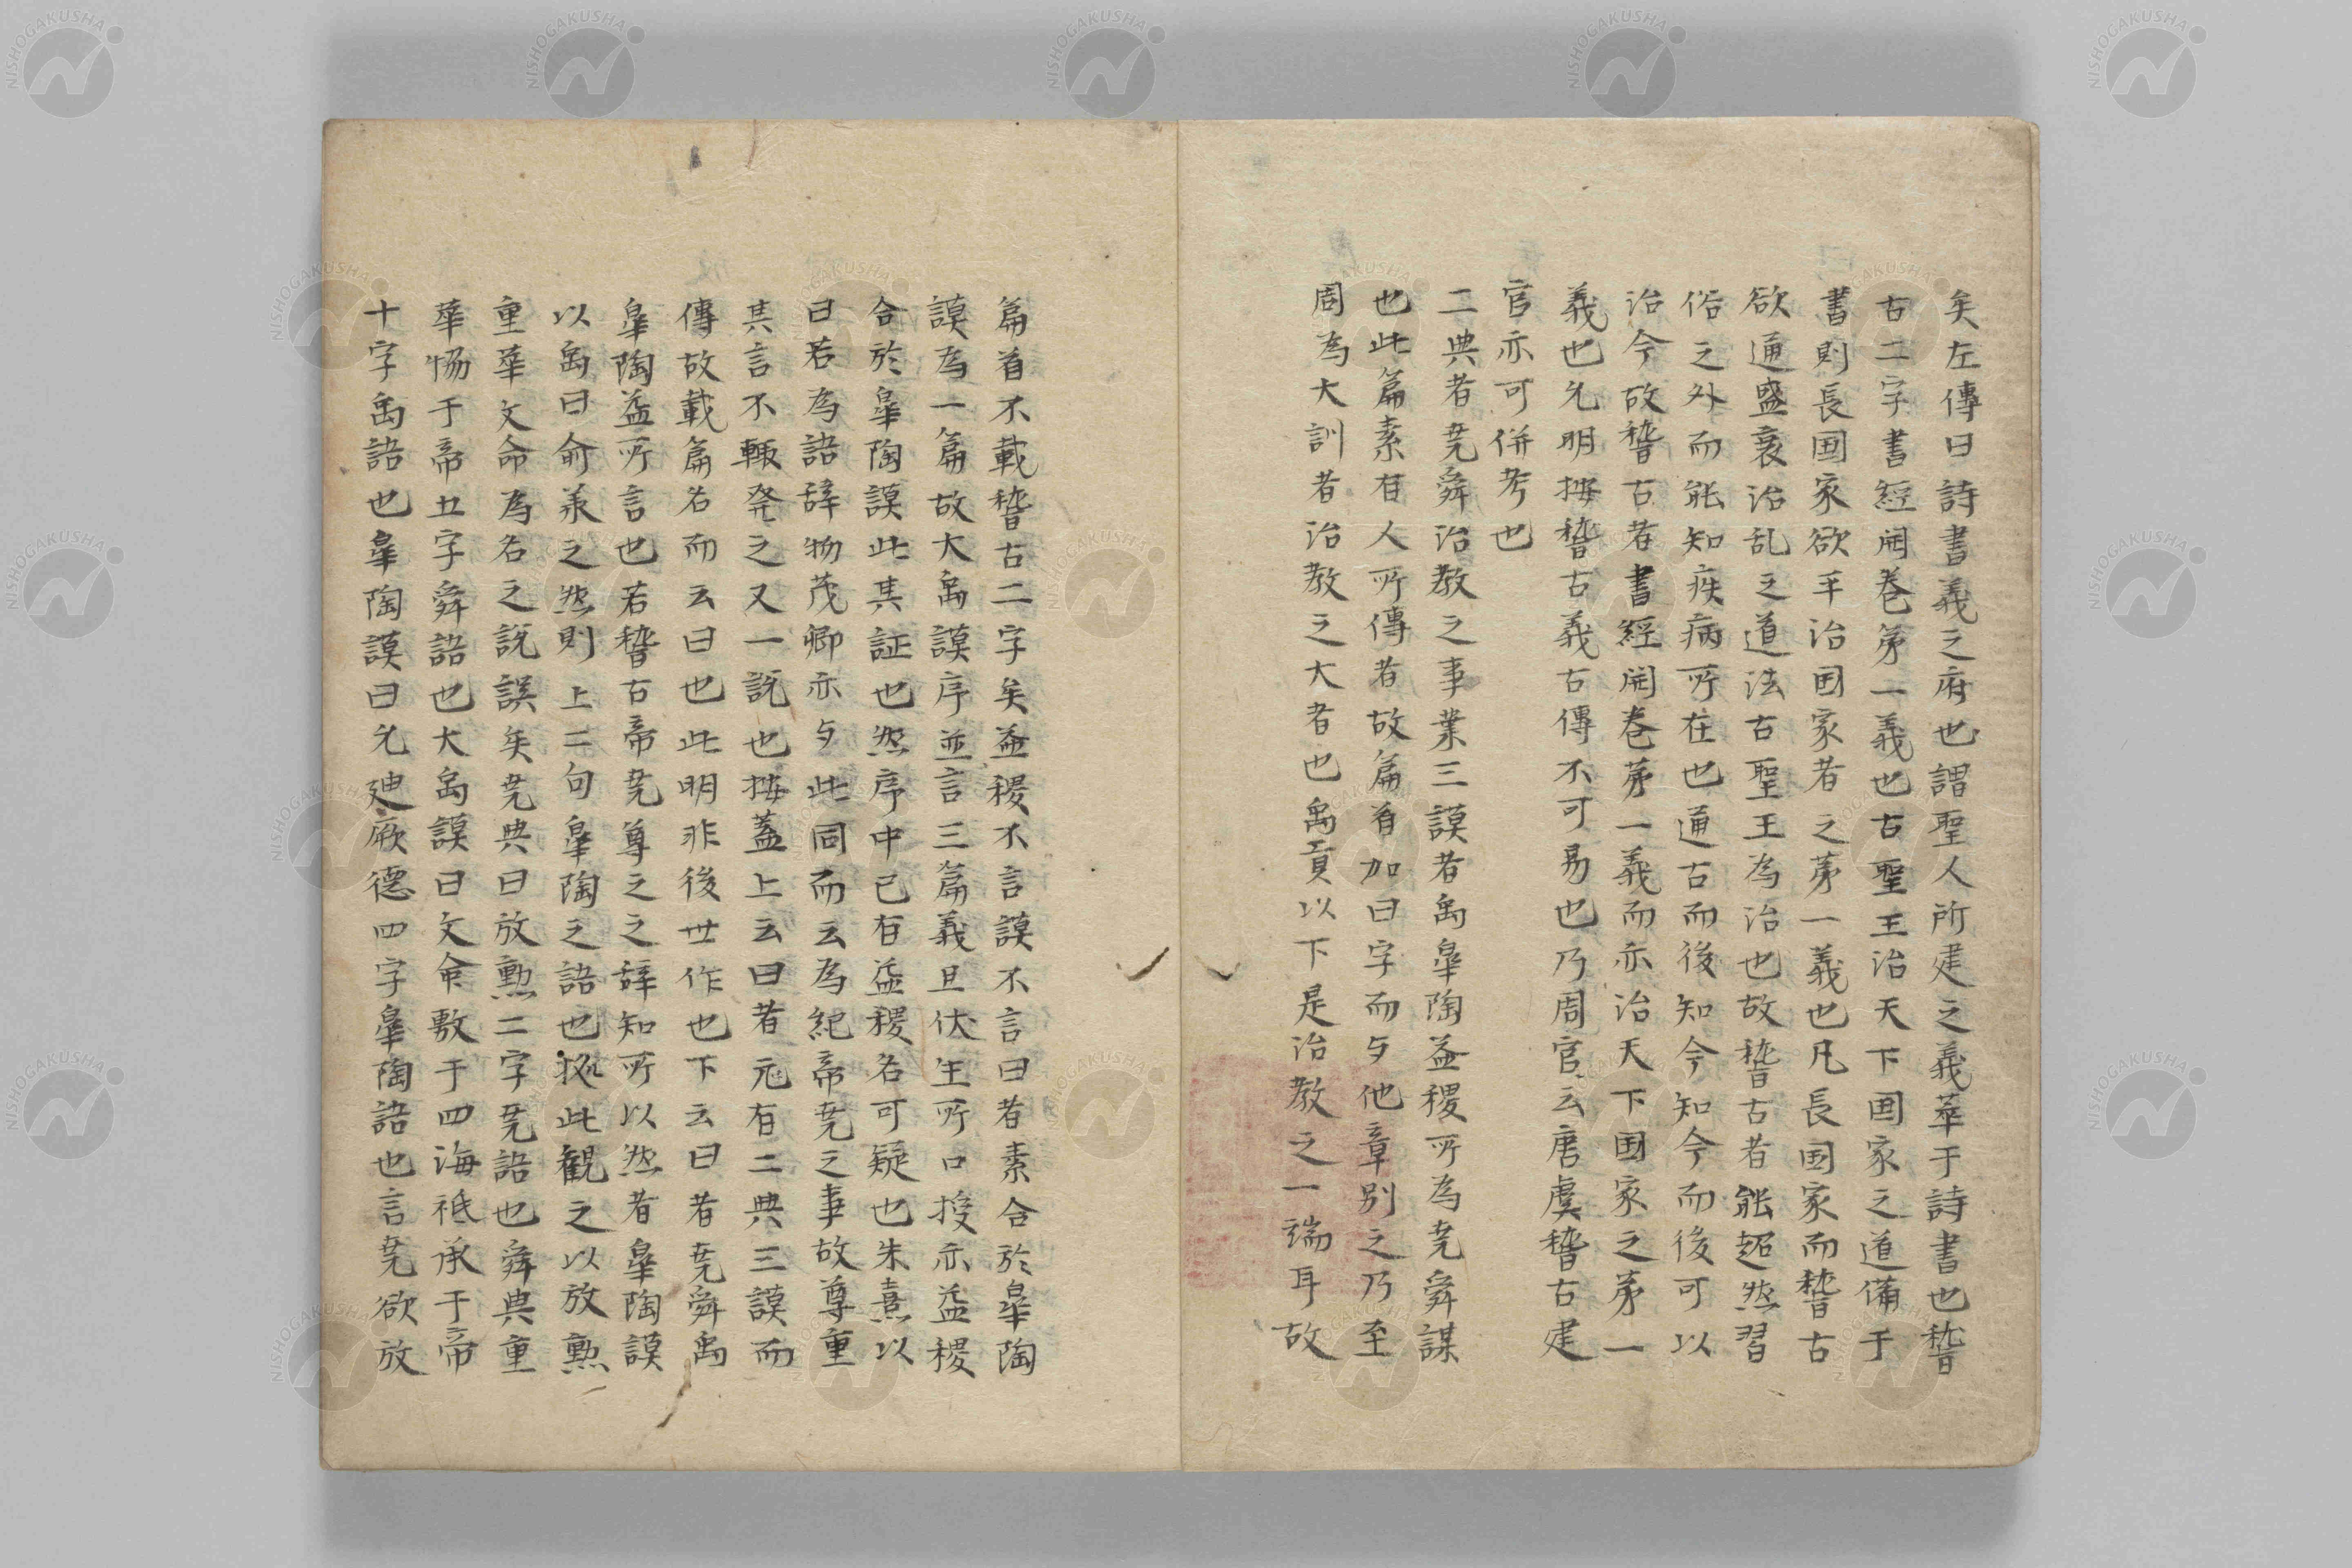 矣左傳曰詩書義之府也謂聖人所建之義萃于詩書也稽
古二字書經開卷第一義也古聖王治天下国家之道備于
書則長国家欲手治国家者之第一義也凡長国家而稽古
欲通盛衰治乱之道法古聖王為治也故稽古者能超然習
俗之外而能知疾病所在也通古而後知今知今而後可以
治今故稽古者書經開卷第一義而亦治天下国家之第一
義也允明按稽古義古傳不可易也乃周官云唐虞稽古建
官亦可併考也
二典者尭舜治教之事業三謨者禹皐陶益稷所為尭舜謀
也此篇素有人所傳者故篇首加曰字而与他章別之乃至
周為大訓者治教之大者也禹貢以下是治教之一端耳故
篇首不載稽古二字矣益稷不言謨不言曰者素合於皐陶
謨為一篇故大禹謨序並言三篇義且伏生所口授亦益稷
合於皐陶謨此其証也然序中已有益稷名可疑也朱熹以
曰若為語辞物茂卿亦与此同而云為紀帝尭之事故尊重
其言不輙発之又一説也按蓋上云曰者元有二典三謨而
傳故載篇名而云曰也此明非後世作也下云曰者尭舜禹
皐陶益所言也若稽古帝尭尊之之辞知所以然者皐陶謨
以禹曰俞兼之然則上二句皐陶之語也拠此観之以放勲
重華文命為名之説誤矣尭典曰放勲二字尭語也舜典重
華恊于帝五字舜語也大禹謨曰文命敷于四海祗承于帝
十字禹語也皐陶謨曰允廸厥德四字皐陶語也言尭欲放